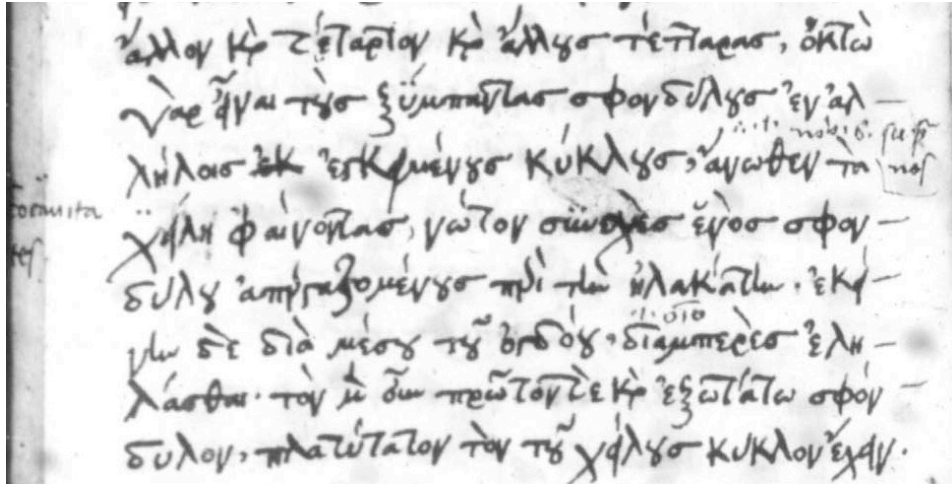 ἄλλον καὶ τέταρτον καὶ ἄλλους τέτταρας, ὀκτὼ
γὰρ εἶναι τοὺς ξύμπαντας σφονδύλους ἐν ἀλ
λήλοις ἐγκειμένους κύκλους, ἄνωθεν τὰ
χείλη φαίνοντας, νῶτον συνεχὲς ἑνὸς σφον
δύλου ἀπεργαζομένους περὶ τὴν ἠλακάτην. ἐκεί
νην δὲ διὰ μέσου τοῦ ὀγδόου, διαμπερὲς ἐλη
λάσθαι. τὸν μὲν οὖν πρῶτόν τε καὶ ἐξωτάτω σφόν
δυλον, πλατύτατον τὸν τοῦ χείλους κύκλον ἔχειν.